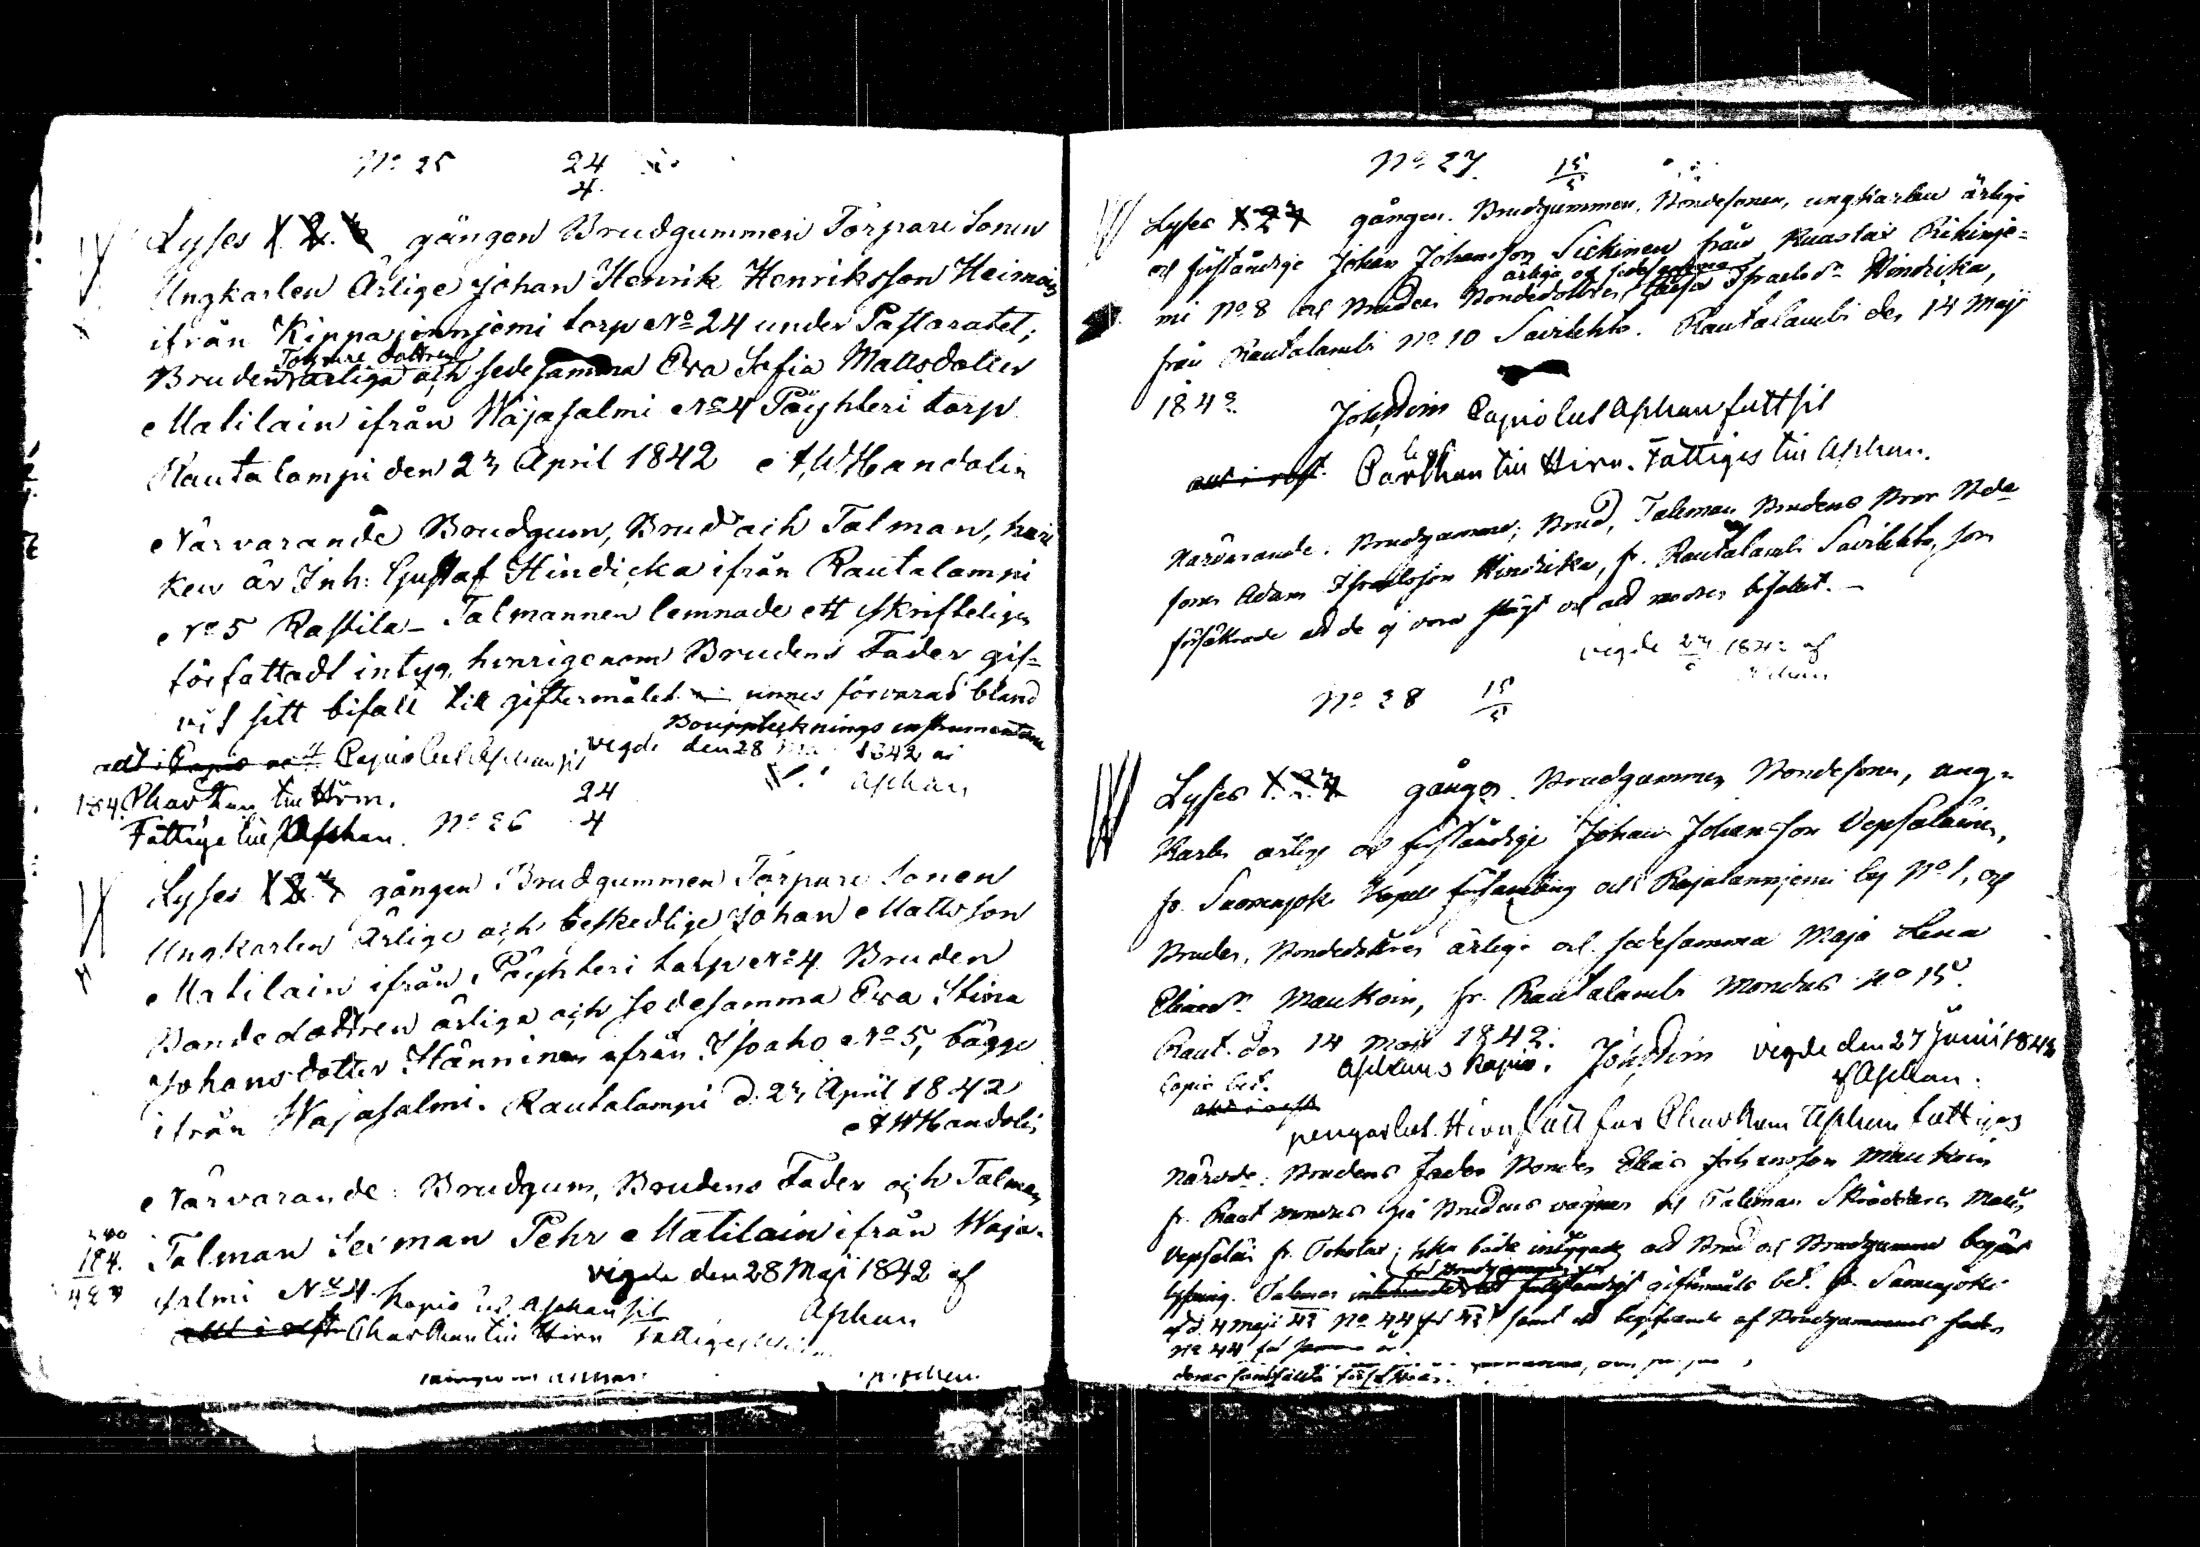 No 25 24/4
Lyses 1. 2. 3 gången Brudgummen Torpare Sonen
Ungkarlen Ärlige Johan Henrik Henriksson Heimoin
ifrån Kippajärnjemi torp No 24 under Pastoratet;
Torpare dottren
Bruden ärliga och sedesamma Eva Sofia Mattsdotter
Matilain ifrån Wajasalmi No 4 Pöyhteri torp
Rautalampi den 23 April 1842 A W Handolin
Närvarande Brudgum, Brud och Talman, hvil
ken är Inh: Gustaf Hindicka ifrån Rautalampi
No 5 Rastila – Talmannen lemnade ett skrifteligen
författadt intyg, hvarigenom Brudens Fader gif-
vit sitt bifall till giftermålet finnes förvarad bland
Bouppteknings instrumenten
Copio lust Aschan sjt vigde den 28 Maj 1842 af
Aschan
184 Charthan tin Hirn.
Fattige tin Aschan. No 26 24/4
Lyses 1 2 3 gången Brudgummen Torpare Sonen
Ungkarlen Ärlige och beskedlige Johan Mattsson
Matilain ifrån Pöyhteri torp No 4 Bruden
Bondedottren ärliga och sedesamma Eva Stina
Johansdotter Hänninen ifrån Isoaho No 5, bägge
ifrån Wajasalmi. Rautalampi d. 23 April 1842
A W Handolin
Närvarande: Brudgum, Brudens Fader och Talman
Talman Pehr Matilain ifrån Waja-
184.
salmi No 4 vigde den 28 Maj 1842 af
Kopio Aschan
Charthan tin Hirn Fattiges
Aschan
No 27 15/5
Lyses 1 2 3 gången. Brudgummen, Bondesonen, ungkarlen ärlige
och förståndige Johan Johansson Sickinen från Kuaslax Rikinje-
ärliga och sedesamma
mi No 8 och Bruden Bondedottren Israelsdr Hindrika,
från Rautalambi No 10 Savilehto. Rautalambi den 14 Maji
1842. Joh. Copio lust Aschan fatt sit
Carthan tin Hirn. Fattiges tin Aschan.
Närvarande: Brudgummen, Brud, Taleman Brudens Bror Bde
sonen Adam Israelsson Hindrika, fr. Rautalambi Savilehto, som
försäkrade att de ej vore skylt och att modren bifallit. –
vigde 27 1842 af
Aschan
No 28 15/5
Lyses 1. 2. 3 gången. Brudgummen Bondesonen, ung-
karlen ärlige och förståndige Johan Johansson Vepsäläinen,
fr. Suonenjoki Kapell församling och Rajalannjemi by No 1, och
Bruden, Bondedottren ärliga och sedesamma Maja Lena
Eliaedr. Maukoin, fr. Rautalambi Mondus No 15.
Raut. den 14 Maji 1842. Joh. vigde den 27 Junii 1842
Copio bet. Aschans Kopio. af Aschan.
pengar lust. Hirn fatt for Charthan Aschan fattiges
Närvde: Brudens fader Bonden Elias Johansson Maukoin
fr. Raut Mondus på Brudens vägnar och Taleman Skräddaren Matts
Vepsäläi fr. Toholax, hvilka båda intygade att Brud och Brudgumme begärt
lysning. Taleman giftermåls bet. fr. Suonenjoki
af d. 4 Maji 42 No 44 samt ett begifvande af Brudgummens fader
No 44